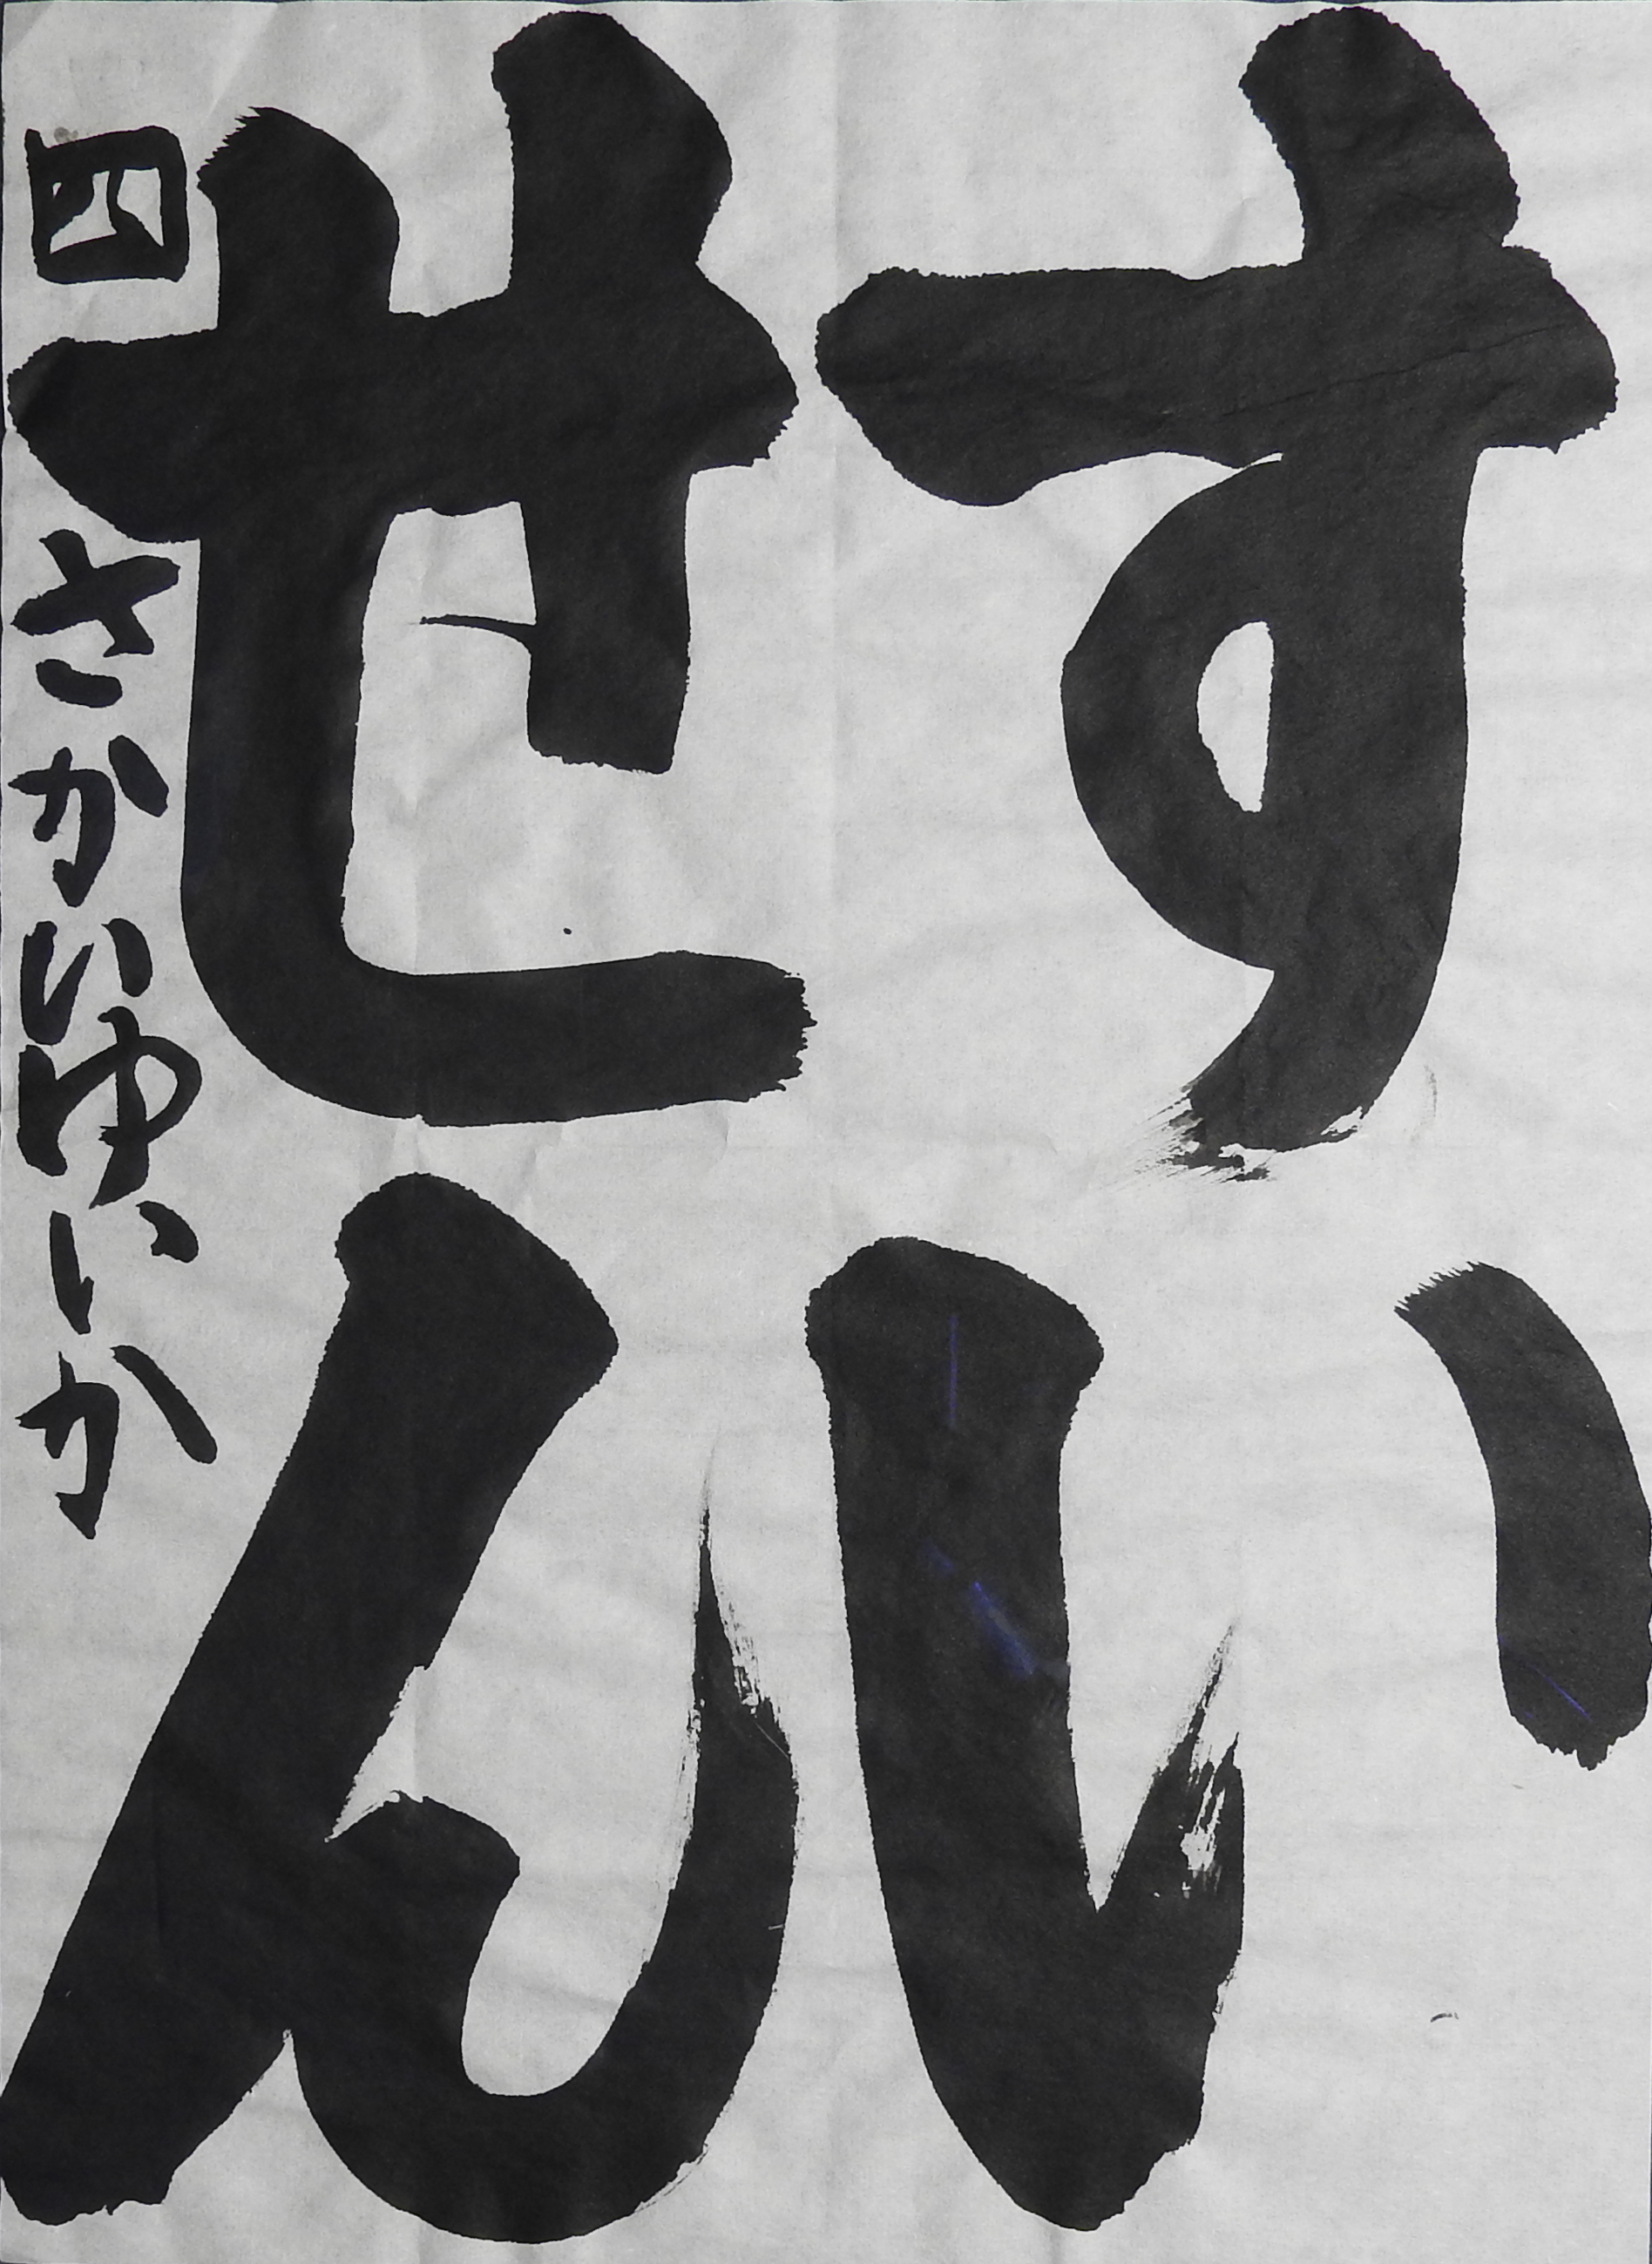 すい
せん
四 さかいゆいか